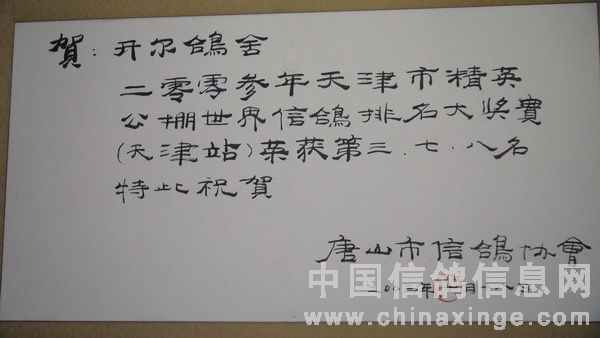 賀：开尔鴿舍
二零零参年天津市精英
公棚世界信鴿排名大奖賽
(天津站)荣获第三.七.八名
特此祝賀
唐山市信鴿协會
中国信鸽信息网
www.chinaxinge.com